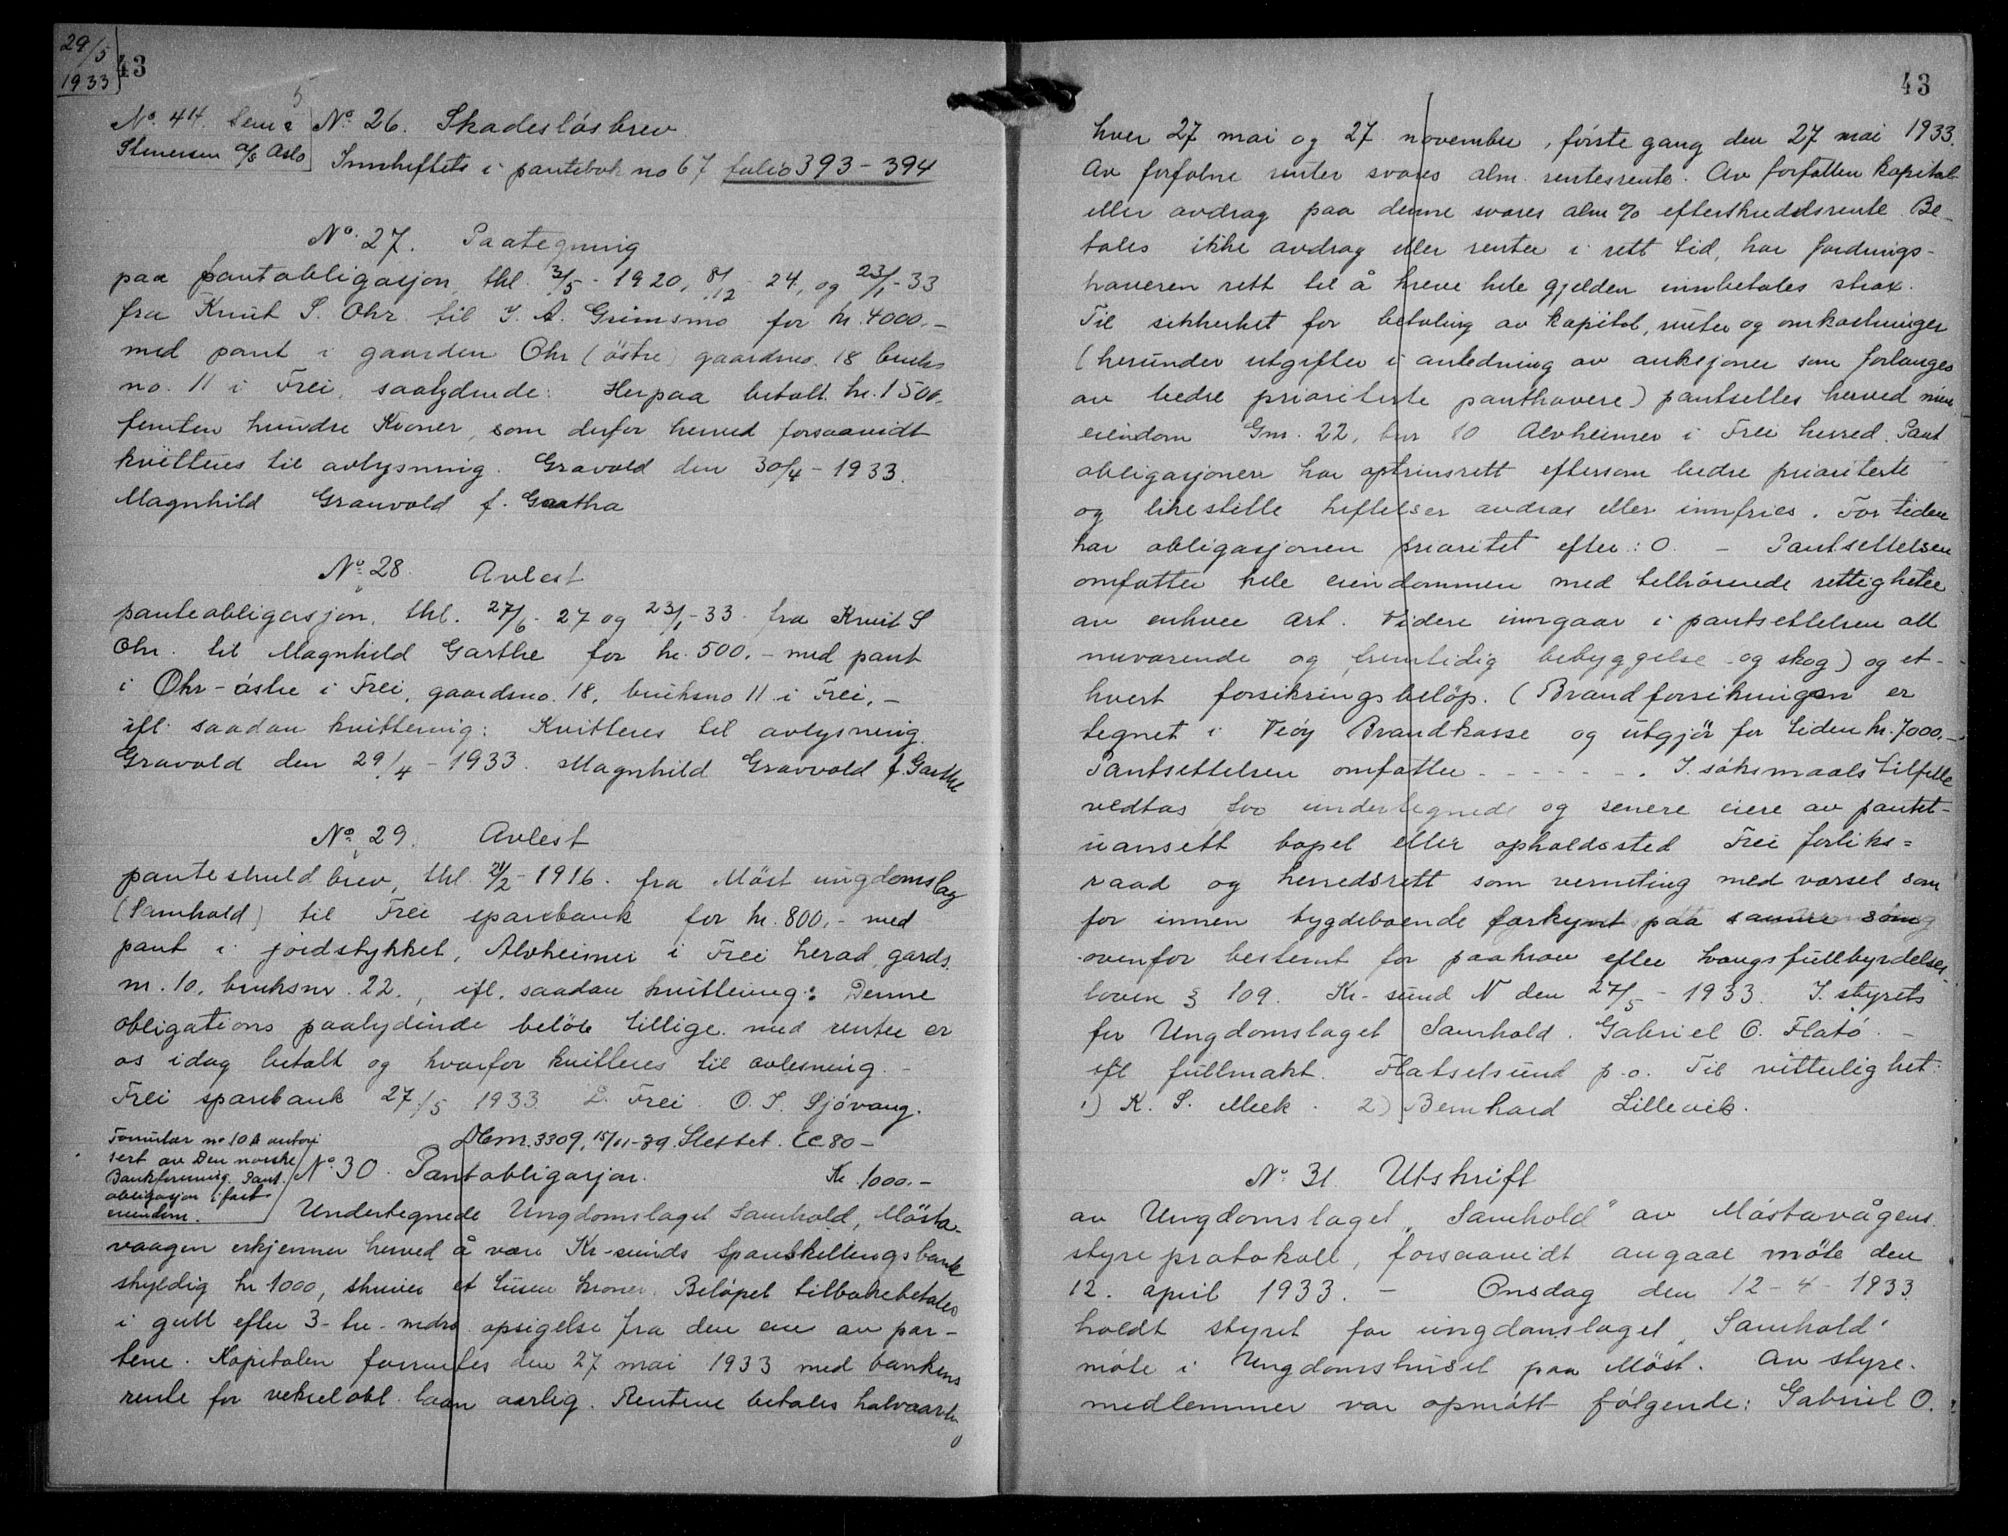 29/5
1933
43
No. 44. Sem &
Stenersen A/S Oslo
No. 26. Skadesløsbrev
Innheftets i pantebok no 67 folio 393 - 394
No. 27. Paategning
paa pantobligasjon, thl. 3/5 - 1920, 8/12 24, og 23/1 - 33
fra Knut S. Ohr til I. A. Grimsmo for kr. 4000.-
med pant i gaarden Ohr (østre) gaardsno. 18 bruks
no. 11 i Frei, saalydende: Herpaa betalt kr. 1500,
femten hundre Kroner, som derfor herved forsaavidt
kvitteres til avlysning. Gravold den 30/4 - 1933.
Magnhild Granvold f. Gartha
No. 28. Avlest
panteobligasjon, thl. 27/6 - 27 og 23/1 - 33 fra Knut S
Ohr. til Magnhild Garthe for kr. 500.- med pant
i Ohr - østre i Frei, gaardsno. 18, bruksno 11 i Frei, -
ifl. saadan kvittering: Kvitteres til avlysning.
Gravold den 29/4 - 1933. Magnhild Gravvold f. Garthe
No. 29. Avlest
panteskuldbrev, thl. /2 - 1916. fra Möst ungdomslag
(Samhold) til Frei sparebank for kr. 800,- med
pant i jordstykket, Alvheimer i Frei herad, gards.
nr. 10, bruksnr. 22., ifl. saadan kvittering: Denne
obligations paalydende beløb tillige med renter er
os idag betalt og hvorfor kvitteres til avlesning. -
Frei sparebank 27/5 1933 L. Frei. O. I. Sjövang.
Dbnr. 3309, 15/11-39. Slettet. CC 80 -
Formular no 10 A autori
sert av Den norske
Bankforening. Pant.
obligasjon i fast
eiendom.
No. 30. Pantobligasjon. Kr. 1000.-
Undertegnede Ungdomslaget Samhold, Mösta-
vaagen erkjenner herved å være Kr-sunds Spareskillingsbank
skyldig kr 1000, skriver et tusen kroner. Beløpet tilbakebetales
i gull efter 3 - tre - mdrs opsigelse fra den ene av par-
tene. Kapitalen forrentes den 27 mai 1933 med bankens
rente for vekselobl. laan aarlig. Rentene betales halvaarlig
43
hver 27 mai og 27 november, første gang den 27 mai 1933.
Av forfalne renter svares alm. rentesrente. Av forfallen kapital
eller avdrag paa denne svares alm % efterskuddsrente. Be-
tales ikke avdrag eller renter i rett tid, har fordrings-
haveren rett til å kreve hele gjelden innbetales strax.
Til sikkerhet for betaling av kapital, renter og omkostninger
(herunder utgifter i anledning av auksjoner som forlanges
av bedre prioriterte panthavere) pantsettes herved min
eiendom Gnr. 22, bnr 10 Alvheimer i Frei herred. Pant
obligasjonen har optrinsrett eftersom bedre prioriterte
og likestillte heftelser avdras eller innfries. For tiden
har obligasjonen prioritet efter: O. - Pantsettelsen
omfatter hele eiendommen med tilhørende rettigheter
av enhver art. Videre inngaar i pantsettelsen all
nuværende og fremtidig bebyggelse og skog) og et-
hvert forsikringsbeløp. (Brandforsikringen er
tegnet i Veöy Brandkasse og utgjör for tiden kr. 7000.-
Pantsettelsen omfatter - - - - - . I. söksmaals tilfelle
vedtas for undertegnede og senere eiere av pantet-
uansett bopel eller opholdssted Frei forliks=
raad og herredsrett som verneting med varsel som
for innen bygdeboende forkynt paa samme som
ovenfor bestemt for paakrav efter tvangsfullbyrdelses
loven § 109. Kr-sund N den 27/5 - 1933. I. styrets
for Ungdomslaget Samhold. Gabriel O. Flatö. -
ifl fullmakt. Flatsetsund p.o. Til vitterlighet:
1) K. S. Meek. 2) Bernhard Lillevik.
No. 31. Utskrift
av Ungdomslaget "Samhold" av Möstavågens
styreprotokoll, forsaavidt angaar möte den
12. april 1933. - Onsdag den 12 - 4 - 1933
holdt styret for ungdomslaget "Samhold"
möte i Ungdomshuset paa Möst. Av styre-
medlemmer var opmött fölgende: Gabriel O.